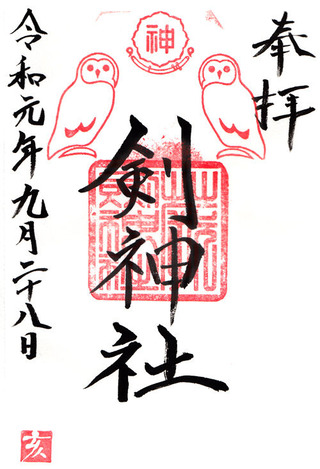 奉拝
神
剣神社
令和元年九月二十八日
亥